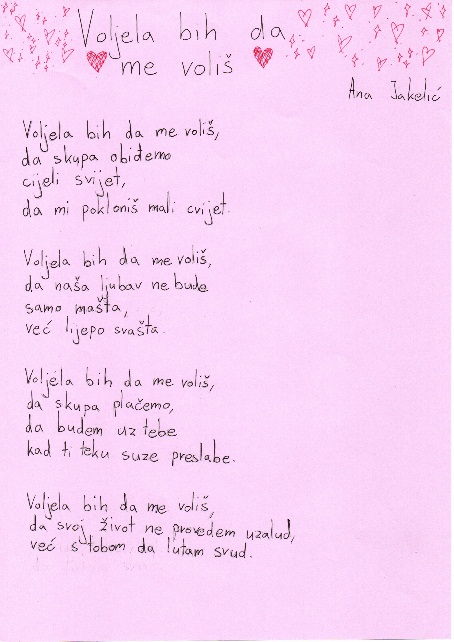 Voljela bih da
me voliš
Ana Jakelić
Voljela bih da me voliš,
da skupa obiđemo
cijeli svijet,
da mi pokloniš mali cvijet.
Voljela bih da me voliš,
da naša ljubav ne bude
samo mašta,
već lijepo svašta.
Voljela bih da me voliš,
da skupa plačemo,
da budem uz tebe
kad ti teku suze preslabe.
Voljela bih da me voliš,
da svoj život ne provedem uzalud,
već s tobom da lutam svud.